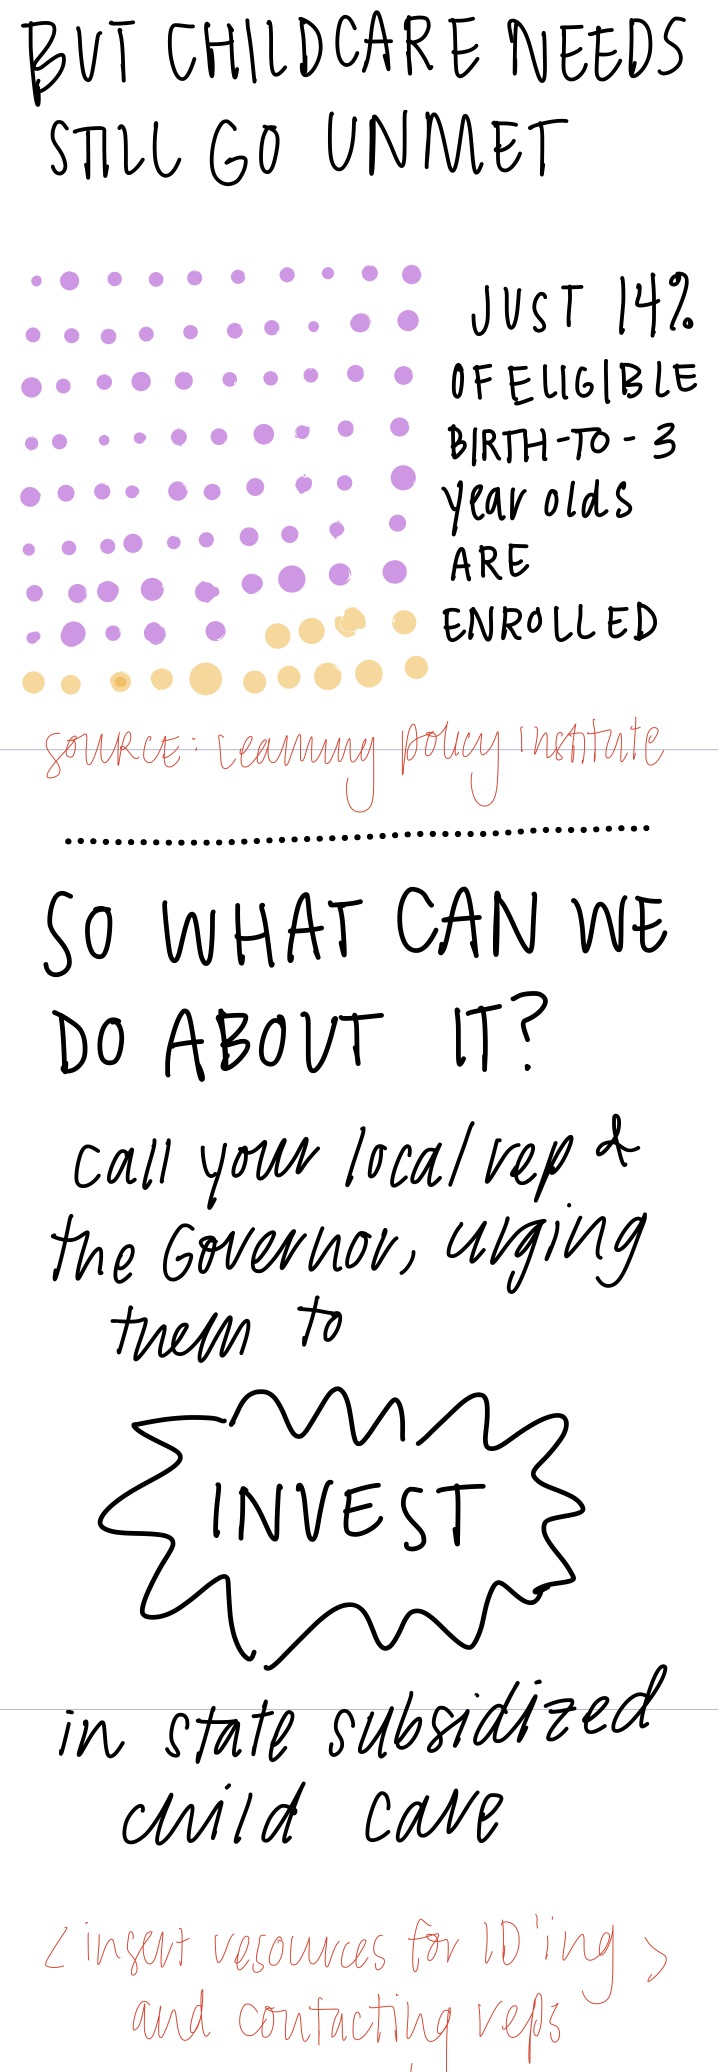 BUT CHILDCARE NEEDS
STILL GO UNMET
JUST 14%
OF ELIGIBLE
BIRTH-TO-3
year olds
ARE
ENROLLED
SOURCE: Learning policy institute
SO WHAT CAN WE
DO ABOUT IT?
call your local rep &
the Governor, urging
them to
INVEST
in state subsidized
child care
<insert resources for ID'ing>
and contacting reps